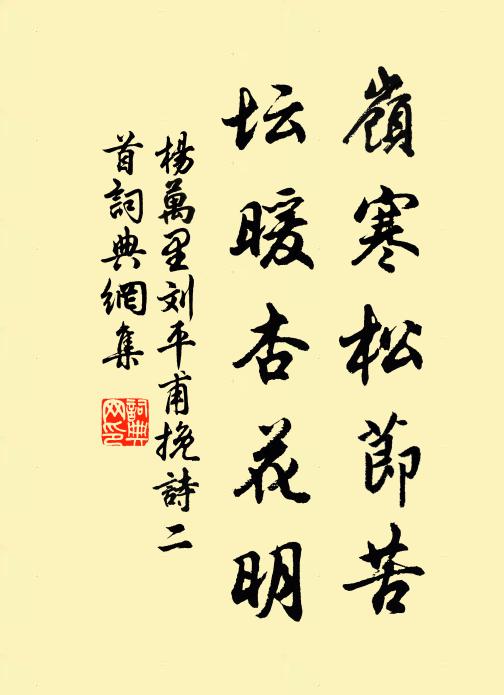 嶺寒松節苦
坛暖杏花明
楊萬里刘平甫挽詩二
首詞典網集
詞典
网印